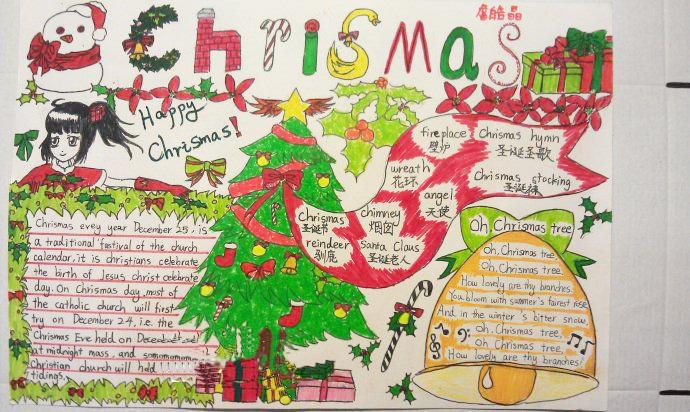 ChriSMAS
Happy
Chrismas!
fireplace
壁炉
Chrismas hymn
圣诞圣歌
wreath
花环
angel
天使
Chrismas stocking
圣诞袜
Chrismas
圣诞节
chimney
烟囱
reindeer
驯鹿
Santa Claus
圣诞老人
Chrismas evey year December 25, is
a traditional festival of the church
calendar, it is christians celebrate
the birth of Jesus christ celebrate
day. On Chrismas day, most of
the catholic church will first
try on December 24, i.e. the
Chrismas Eve held on
at midnight mass, and
Christian church will held
tidings.
Oh, Chrismas tree
Oh, Chrismas tree,
Oh, Chrismas tree,
How lovely are thy branches.
You bloom with summer's fairest rise,
And in the winter's bitter snow,
Oh, Chrismas tree,
Oh, Chrismas tree,
How lovely are thy branches!